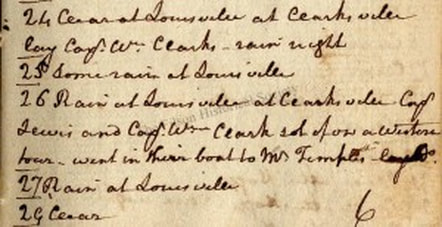 24 Clear at Louisville at Clarksville
lay Capt. Wm. Clarks - rain night
25 Some rain at Louisville
26 Rain at Louisville at Clarksville Capt
Lewis and Capt. Wm Clark set of on a Western
tour - went in their boat to Mr Temples
27 Rain at Louisville
29 Clear 6